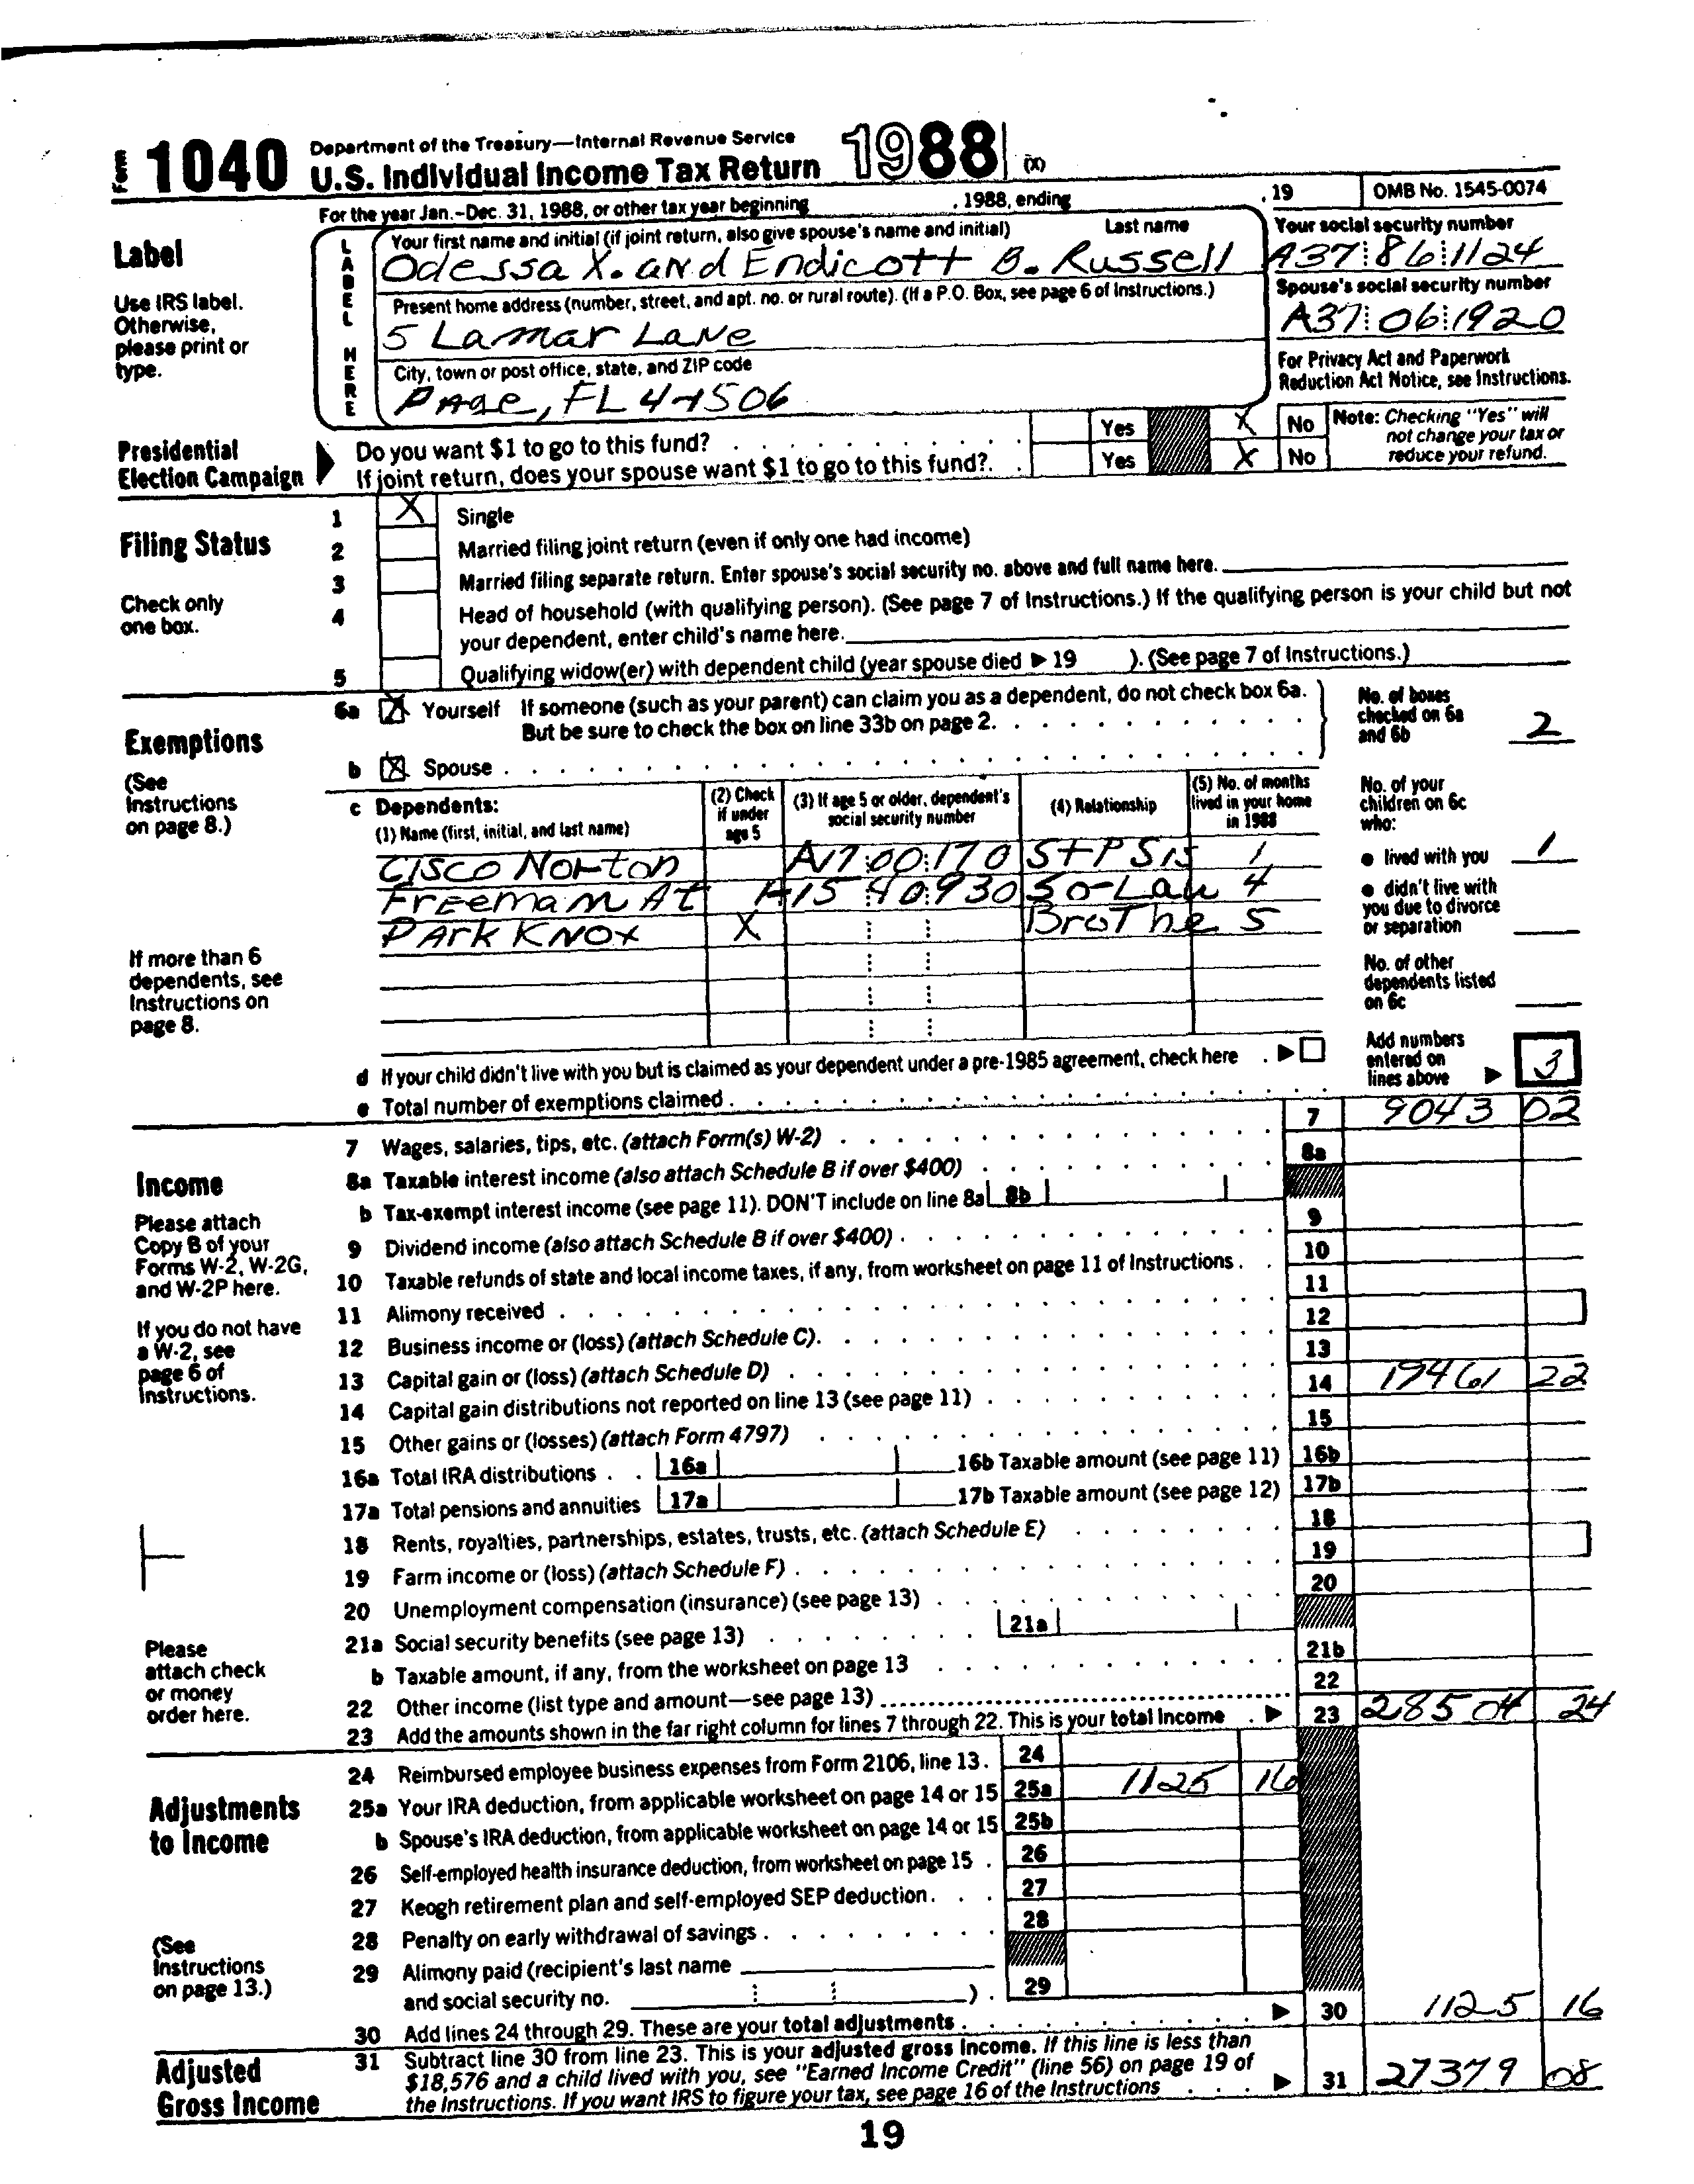 Form 1040 Department of the Treasury—Internal Revenue Service
U.S. Individual Income Tax Return 1988 (X)
For the year Jan.-Dec. 31, 1988, or other tax year beginning , 1988, ending , 19 OMB No. 1545-0074
Label
Use IRS label. Otherwise, please print or type.
LABEL HERE
Your first name and initial (if joint return, also give spouse's name and initial) Last name
Odessa X. and Endicott B. Russell
Your social security number
A37 86 1124
Present home address (number, street, and apt. no. or rural route). (If a P.O. Box, see page 6 of Instructions.)
5 Lamar Lane
Spouse's social security number
A37 06 1920
City, town or post office, state, and ZIP code
Page, FL 41506
For Privacy Act and Paperwork Reduction Act Notice, see Instructions.
Presidential Election Campaign
Do you want $1 to go to this fund? Yes X No
If joint return, does your spouse want $1 to go to this fund?. Yes X No
Note: Checking "Yes" will not change your tax or reduce your refund.
Filing Status
Check only one box.
1 X Single
2 Married filing joint return (even if only one had income)
3 Married filing separate return. Enter spouse's social security no. above and full name here.
4 Head of household (with qualifying person). (See page 7 of Instructions.) If the qualifying person is your child but not
your dependent, enter child's name here.
5 Qualifying widow(er) with dependent child (year spouse died ▶ 19 ). (See page 7 of Instructions.)
Exemptions
(See Instructions on page 8.)
6a X Yourself If someone (such as your parent) can claim you as a dependent, do not check box 6a.
But be sure to check the box on line 33b on page 2.
b X Spouse
No. of boxes checked on 6a and 6b 2
c Dependents:
(1) Name (first, initial, and last name)
(2) Check if under age 5
(3) If age 5 or older, dependent's social security number
(4) Relationship
(5) No. of months lived in your home in 1988
Cisco Norton A17 00 170 StPSis 1
Freeman At A15 40 930 So-Law 4
Park Knox X Brothe 5
If more than 6 dependents, see Instructions on page 8.
No. of your children on 6c who:
● lived with you 1
● didn't live with you due to divorce or separation
No. of other dependents listed on 6c
d If your child didn't live with you but is claimed as your dependent under a pre-1985 agreement, check here ▶
e Total number of exemptions claimed
Add numbers entered on lines above ▶ 3
Income
Please attach Copy B of your Forms W-2, W-2G, and W-2P here.
If you do not have a W-2, see page 6 of Instructions.
Please attach check or money order here.
7 Wages, salaries, tips, etc. (attach Form(s) W-2) 7 9043 02
8a Taxable interest income (also attach Schedule B if over $400) 8a
b Tax-exempt interest income (see page 11). DON'T include on line 8a 8b
9 Dividend income (also attach Schedule B if over $400) 9
10 Taxable refunds of state and local income taxes, if any, from worksheet on page 11 of Instructions 10
11 Alimony received 11
12 Business income or (loss) (attach Schedule C). 12
13 Capital gain or (loss) (attach Schedule D) 13
14 Capital gain distributions not reported on line 13 (see page 11) 14 19461 22
15 Other gains or (losses) (attach Form 4797) 15
16a Total IRA distributions 16a 16b Taxable amount (see page 11) 16b
17a Total pensions and annuities 17a 17b Taxable amount (see page 12) 17b
18 Rents, royalties, partnerships, estates, trusts, etc. (attach Schedule E) 18
19 Farm income or (loss) (attach Schedule F) 19
20 Unemployment compensation (insurance) (see page 13) 20
21a Social security benefits (see page 13) 21a
b Taxable amount, if any, from the worksheet on page 13 21b
22 Other income (list type and amount—see page 13) 22
23 Add the amounts shown in the far right column for lines 7 through 22. This is your total income ▶ 23 28504 24
Adjustments to Income
(See Instructions on page 13.)
24 Reimbursed employee business expenses from Form 2106, line 13. 24
25a Your IRA deduction, from applicable worksheet on page 14 or 15 25a 1125 16
b Spouse's IRA deduction, from applicable worksheet on page 14 or 15 25b
26 Self-employed health insurance deduction, from worksheet on page 15 26
27 Keogh retirement plan and self-employed SEP deduction 27
28 Penalty on early withdrawal of savings 28
29 Alimony paid (recipient's last name
and social security no. ) 29
30 Add lines 24 through 29. These are your total adjustments ▶ 30 1125 16
Adjusted Gross Income
31 Subtract line 30 from line 23. This is your adjusted gross income. If this line is less than
$18,576 and a child lived with you, see "Earned Income Credit" (line 56) on page 19 of
the Instructions. If you want IRS to figure your tax, see page 16 of the Instructions ▶ 31 27379 08
19